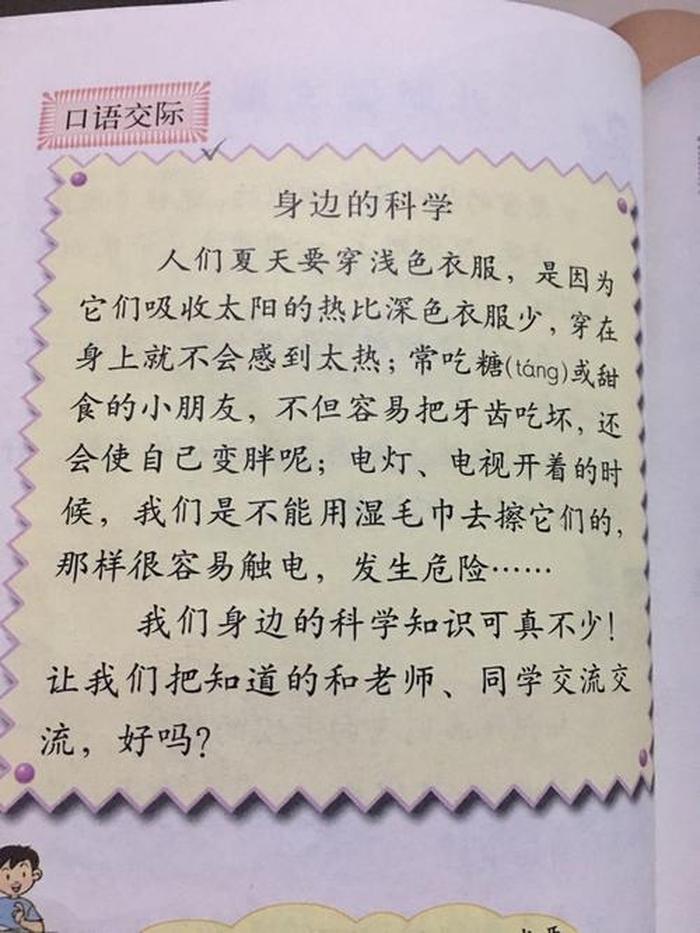 口语交际
身边的科学
人们夏天要穿浅色衣服，是因为
它们吸收太阳的热比深色衣服少，穿在
身上就不会感到太热；常吃糖(táng)或甜
食的小朋友，不但容易把牙齿吃坏，还
会使自己变胖呢；电灯、电视开着的时
候，我们是不能用湿毛巾去擦它们的，
那样很容易触电，发生危险……
我们身边的科学知识可真不少！
让我们把知道的和老师、同学交流交
流，好吗？